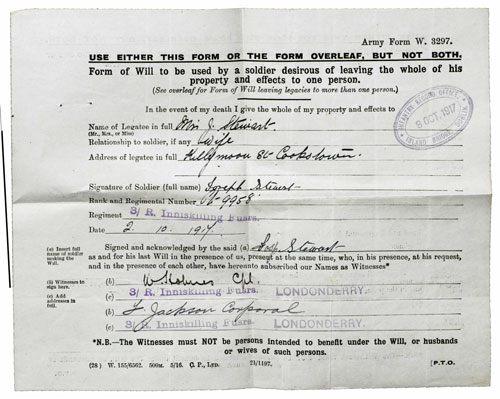 Army Form W. 3297.
USE EITHER THIS FORM OR THE FORM OVERLEAF, BUT NOT BOTH.
Form of Will to be used by a soldier desirous of leaving the whole of his
property and effects to one person.
(See overleaf for Form of Will leaving legacies to more than one person.)
In the event of my death I give the whole of my property and effects to
Name of Legatee in full Mrs J. Stewart.
(Mr., Mrs., or Miss)
Relationship to soldier, if any Wife
Address of legatee in full Killymoon St Cookstown.
INFANTRY RECORD OFFICE
9 OCT. 1917
ISLAND BRIDGE, DUBLIN
Signature of Soldier (full name) Joseph Stewart
Rank and Regimental Number 9958
Regiment 3/ R. Inniskilling Fusrs.
Date 2. 10. 1917.
(a) Insert full name of soldier making the Will.
Signed and acknowledged by the said (a) Stewart
as and for his last Will in the presence of us, present at the same time, who, in his presence, at his request,
and in the presence of each other, have hereunto subscribed our Names as Witnesses*
(b) Witnesses to sign here.
(b) W Holmes Cpl.
(c) Add addresses in full.
(c) 3/ R. Inniskilling Fusrs. LONDONDERRY.
(b) Jackson Corporal
(c) 3/ R. Inniskilling Fusrs. LONDONDERRY.
*N.B.—The Witnesses must NOT be persons intended to benefit under the Will, or husbands
or wives of such persons.
(28) W. 155/6562. 500M. 5/16. C. P., LTD. 21/1197. [P.T.O.